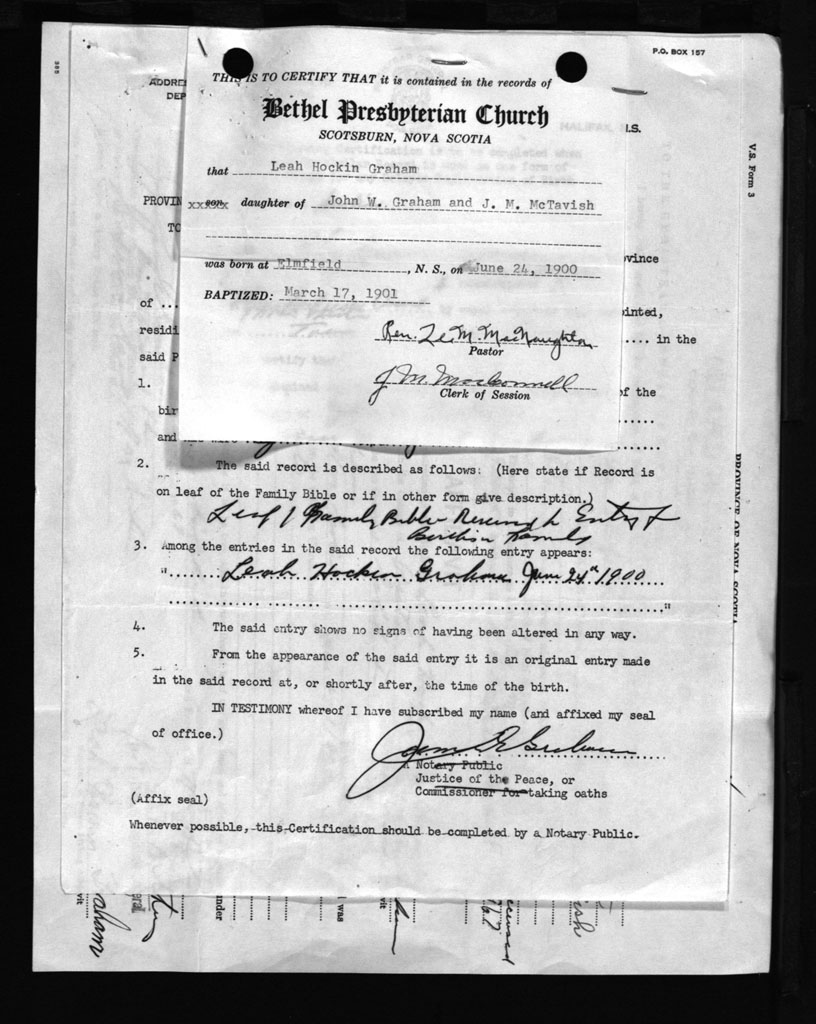 P.O. BOX 157
THIS IS TO CERTIFY THAT it is contained in the records of
Bethel Presbyterian Church
SCOTSBURN, NOVA SCOTIA
that Leah Hockin Graham
xxxxx son daughter of John W. Graham and J. M. McTavish
was born at Elmfield, N. S., on June 24, 1900
BAPTIZED: March 17, 1901
Rev. L. M. MacNaughton
Pastor
J M. MacConnell
Clerk of Session
ADDRE
DEP
HALIFAX, N.S.
V.S. Form 3
PROVIN
TO
vince
of ... inted,
residi .... in the
said P
1. of the
bir
and his wife
2. The said record is described as follows: (Here state if Record is
on leaf of the Family Bible or if in other form give description.)
Leaf of Family Bible Entry of
3. Among the entries in the said record the following entry appears:
"........Leah Hockin Graham June 24th 1900....
..............................."
4. The said entry shows no signs of having been altered in any way.
5. From the appearance of the said entry it is an original entry made
in the said record at, or shortly after, the time of the birth.
IN TESTIMONY whereof I have subscribed my name (and affixed my seal
of office.)
A Notary Public
Justice of the Peace, or
Commissioner for taking oaths
(Affix seal)
Whenever possible, this Certification should be completed by a Notary Public.
PROVINCE OF NOVA SCOTIA
raham
vit
eral
under
I was
vit